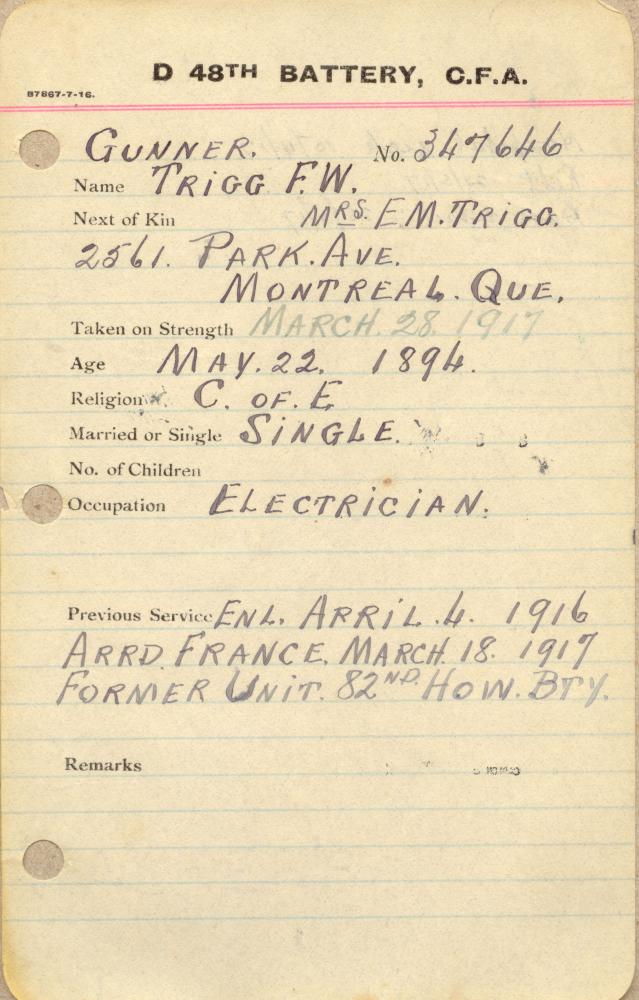 D 48TH BATTERY, C.F.A.
B7867-7-16.
GUNNER. No. 347646
Name TRIGG F.W.
Next of Kin MRS. E M. TRIGG.
2561. PARK. AVE.
MONTREAL. QUE.
Taken on Strength MARCH. 28. 1917
Age MAY. 22. 1894.
Religion C. OF. E
Married or Single SINGLE.
No. of Children
Occupation ELECTRICIAN.
Previous Service ENL. APRIL. 4. 1916
ARRD. FRANCE. MARCH. 18. 1917
FORMER UNIT. 82ND. HOW. BTY.
Remarks